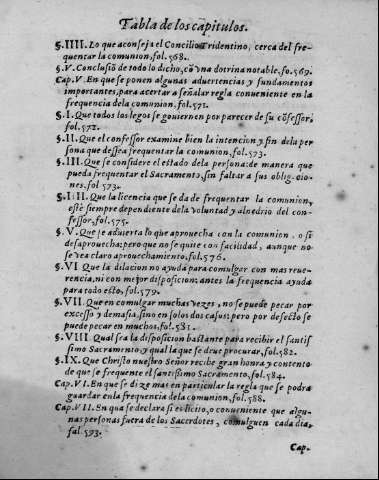 Tabla de los cãpitulos.
§.IIII. Lo que aconseja el Concilio Tridentino, cerca del fre-
quentar la comunion, fol.568.
§.V. Conclusiõ de todo lo dicho, cõ vna dotrina notable, fo.569.
Cap.V. En que se ponen algunas aduertencias y fundamentos
importantes, para acertar a señalar regla conueniente en la
frequencia de la comunion. fol.571.
§.I. Que todos los legos se gouiernen por parecer de su cõfessor,
fol.572.
§.II. Que el confessor examine bien la intencion, y fin de la per
sona que dessea frequentar la comunion, fol.573.
§.III. Que se considere el estado de la persona: de manera que
pueda frequentar el Sacramento, sin faltar a sus oblig cio-
nes. fol 573.
§.IIII. Que la licencia que se da de frequentar la comunion,
estè siempre dependiente de la voluntad y aluedrio del con-
fessor, fol.575.
§.V. Que se aduierta lo que aprouecha con la comunion, o si
desaprouecha: pero que no se quite con facilidad, aunque no
se vea claro aprouechamiento, fol.576.
§.VI Que la dilacion no ayuda para comulgar con mas reue-
rencia, ni con mejor disposicion: antes la frequencia ayuda
para todo esto, fol.579.
§.VII. Que en comulgar muchas vezes, no se puede pecar por
excesso y demasia, sino en solos dos casos: pero por defecto se
puede pecar en muchos, fol.581.
§.VIII Qual sea la disposicion bastante para recibir el santis
simo Sacramento, y qual la que se deue procurar, fol.582.
§.IX. Que Christo nuestro Señor recibe gran honra y contento
de que se frequente el santissimo Sacramento, fol.584.
Cap.VI. En que se dize mas en particular la regla que se podra
guardar en la frequencia de la comunion, fol.588.
Cap.VII. En que se declara si es licito, o conueniente que algu-
nas personas fuera de los Sacerdotes, comulguen cada dia,
fol.593.
Cap.